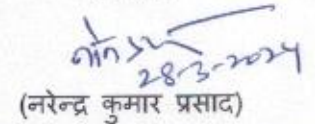 28-3-2024
(नरेन्द्र कुमार प्रसाद)